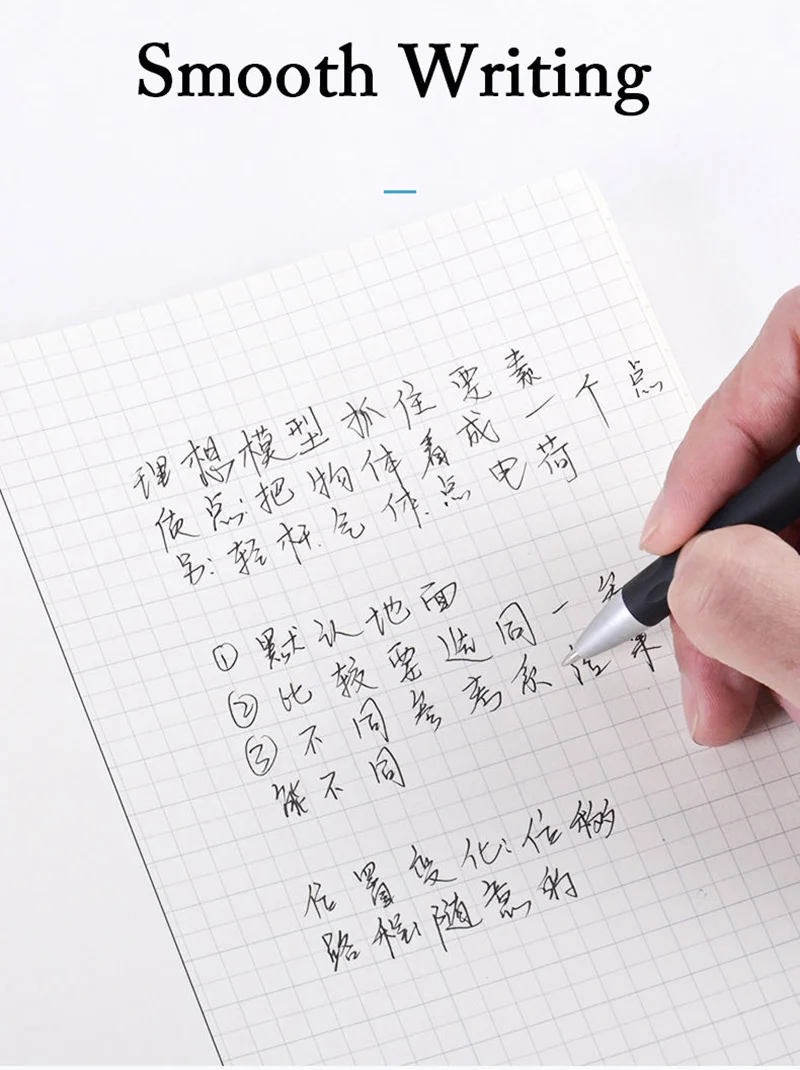 Smooth Writing
理想模型 抓住要素
质点:把物体看成一个点
另:轻杆.气体.点电荷
① 默认地面
② 比较要选同一
③ 不同参考系 结果
能不同
位置变化:位移
路程:随意的